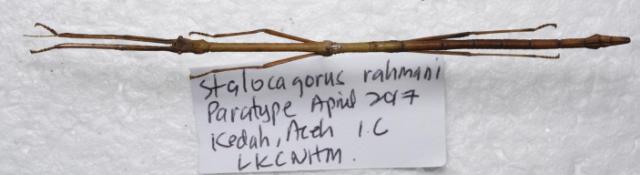 Stalocagorus rahmani
Paratype April 2017
Kedah, Aceh I.C
LKCNHM.